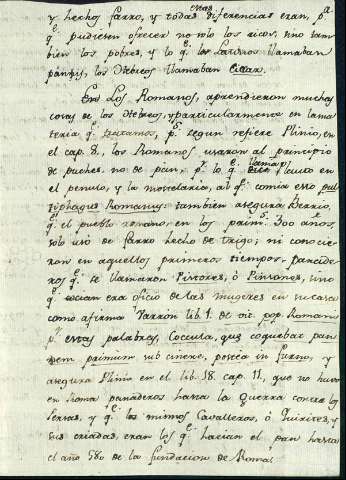 y hecho farro, y todas estas diferencias eran, pa
qe. pudiesen ofrecer no solo los ricos, sino tam
bien los pobres, y lo qe. los Latinos llamaban
panis, los Hebreos llamaban
Los Romanos, aprendieron muchas
cosas de los Hebreos, y particularmente en la ma
teria qe. tratamos, ps. segun refiere Plinio, en
el cap. 8., los Romanos usaron al principio
de puches, no de pan, pr. lo qe. llamó Plauto en
el penulo, y la mostelaria, al qe. comia esto pul
tiphagus Romanus: tambien asegura Berrio,
qe. el pueblo romano, en los prim.os 300 años,
solo usó de farro hecho de trigo; ni conocie
ron en aquellos primeros tiempos panade
ros qe. se llamaron Pistores, ó Pinsores, sino
qe. era oficio de las mugeres en su casa
como afirma Varrón lib. 1. de vit. pop. Romano
pr. estas palabras, Cocula, que coquebar pan
nem primum sub cinere, postea in furno, y
asegura Plinio en el lib. 18. cap. 11., que no huvo
en Roma panaderos hasta la Guerra contra los
Persas, y qe. los mismos Cavalleros, ó Quirites, y
sus criadas, eran los qe. hacian el pan hasta
el año 580 de la fundacion de Roma.